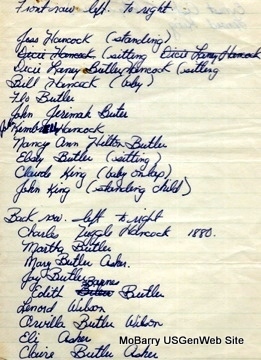 Front row left to right
Jess Hancock (standing)
Dicie Hancock (sitting Dicie Laney Hancock
Dicie Laney Butler Hancock (sitting
Bill Hancock (baby)
Flo Butler
John Jerimah Buter
Hancock
Nancy Ann Helton Butler
Ebby Butler (sitting)
Claude King (baby on lap)
John King (standing child)
Back row. left to right
Charles Tuggle Hancock 1880.
Martha Butler
Mary Butler Asher.
Jay Butler
Barnes
Edith Butler
Lenord Wilson
Orvilla Butler Wilson
Eli Asher
Claire Butler Asher
MoBarry USGenWeb Site